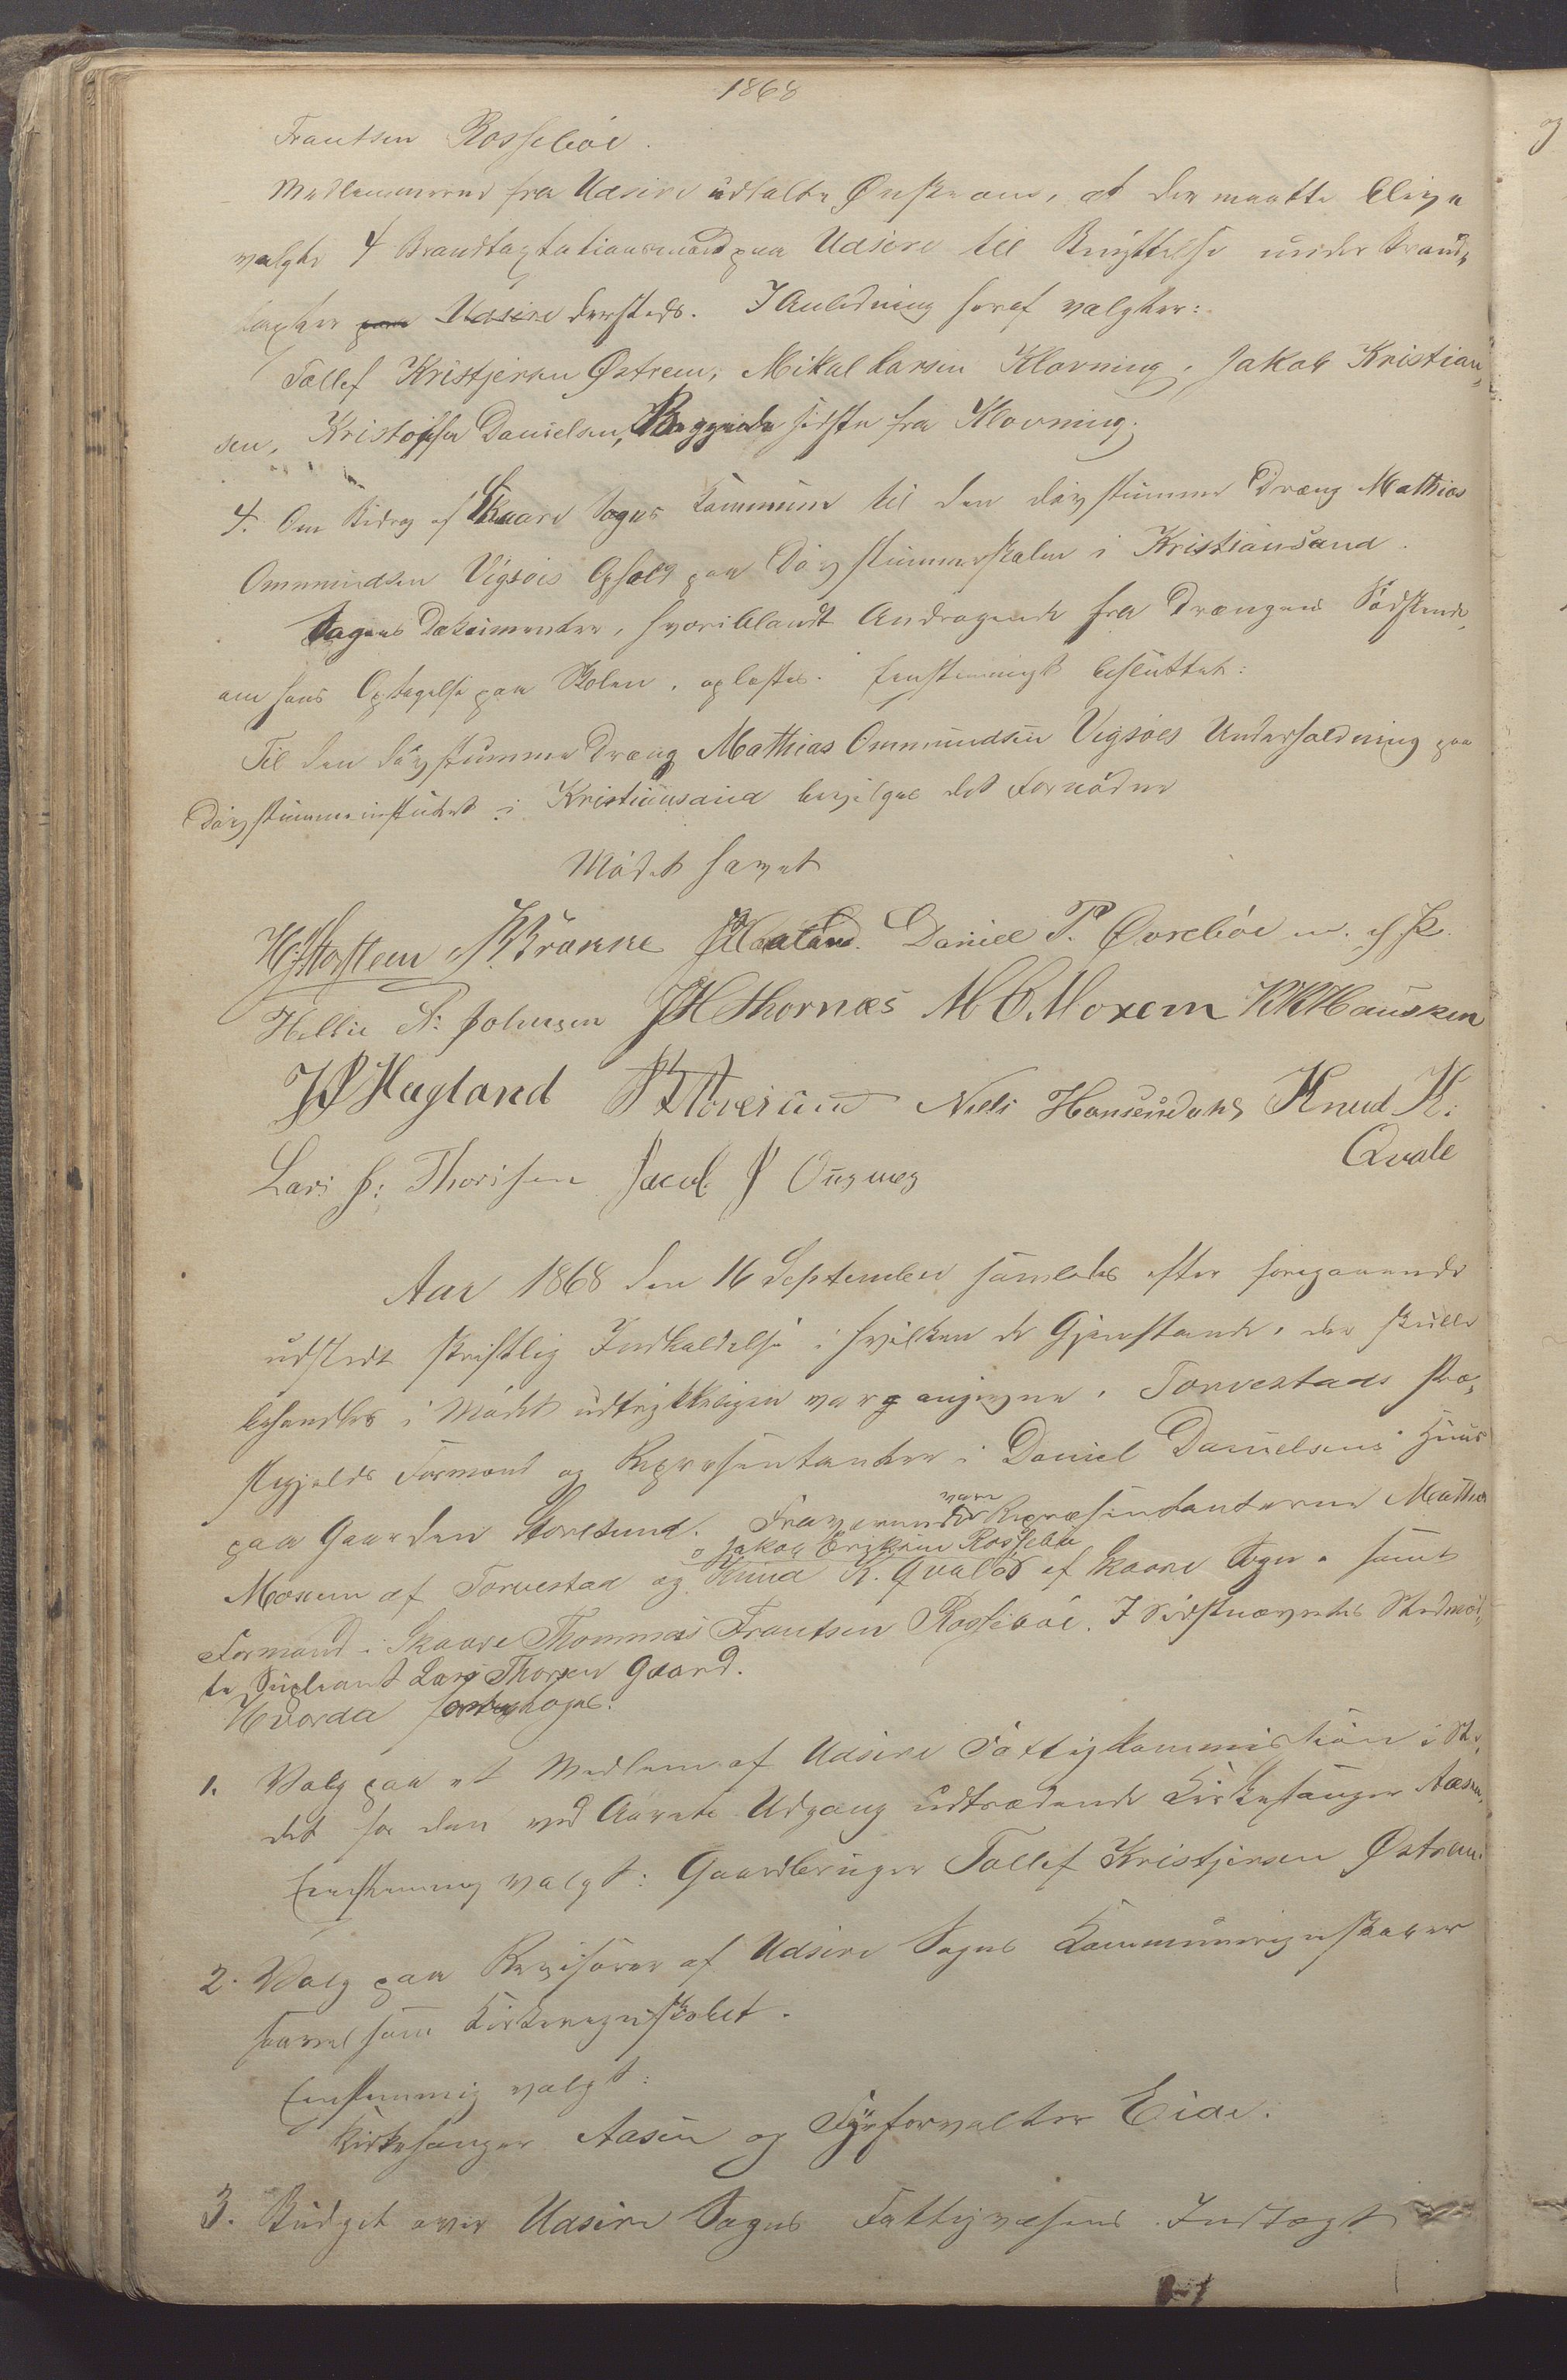 1868
Frantsen Rossebøe.
Medlemmerne fra Udsire udtalte Ønske om, at der maatte blive
valgte 4 Brandtaxtationsmænd paa Udsire til Benyttelse under Brand-
taxter paa Udsire dersteds. I Anledning heraf valgtes:
Tollef Kristjersen Østrem, Mikal Larsen Klovning, Jakob Kristian-
sen, Kristoffer Danielsen, Begge de sidste fra Klovning.
4. Om Bidrag af Skaare Sogns Kommune til den døvstumme Dreng Mathias
Ommundsen Vigsøes Ophold paa Døvstummeskolen i Kristiansand.
Sagens Dokumenter, hvoriblandt Andragende fra Drengens Sødskende,
om hans Optagelse paa Skolen, oplæstes. Eenstemmigt besluttet:
Til den døvstumme Dreng Mathias Ommundsen Vigsøes Underholdning paa
Døvstummeinstitutet i Kristiansand bevilges det Fornødne
Mødet hævet
H. Hofsteen K. Brønne Haaland. Daniel P. Øvrebøe m. f. P.
Hellie A. Johnsen JH Thornæs M O. Moxem KK Hausken
JP Hagland Niels Hansen Knud K.
Qvale
Lars J: Thorsen Jacob J
Aar 1868 den 16 September samledes efter foregaaende
udstedt skriftlig Indkaldelse i hvilken de Gjenstande, der skulle
behandles i Mødet udtrykkeligen vare angivne, Torvestads Præ-
stegjelds Formænd og Repræsentanter i Daniel Danielsens Huus
paa Gaarden Storesund. Fraværende vare Repræsentanterne Mathias
Moxem af Torvestad og Jakob Eriksen Rossebø
Knud K. Qvale af Skaare Sogn, samt
Formand i Skaare Thommas Frantsen Rossebøe. I Sidstnævntes Sted mød-
te Supleant Lars Thorsen Gaard.
Hvorda foretoges:
1. Valg paa et Medlem af Udsire Fattigkommission i Ste-
det for den ved Aarets Udgang udtrædende Kirkesanger Aasen.
Eenstemmig valgt: Gaardbruger Tollef Kristjersen Østrem.
2. Valg paa Revisorer af Udsire Sogns Kommuneregnskaber
saavelsom Kirkeregnskabet.
Eenstemmig valgt:
Kirkesanger Aasen og Fyrforvalter Eide.
3. Budget over Udsire Sogns Fattigvæsens Indtægt